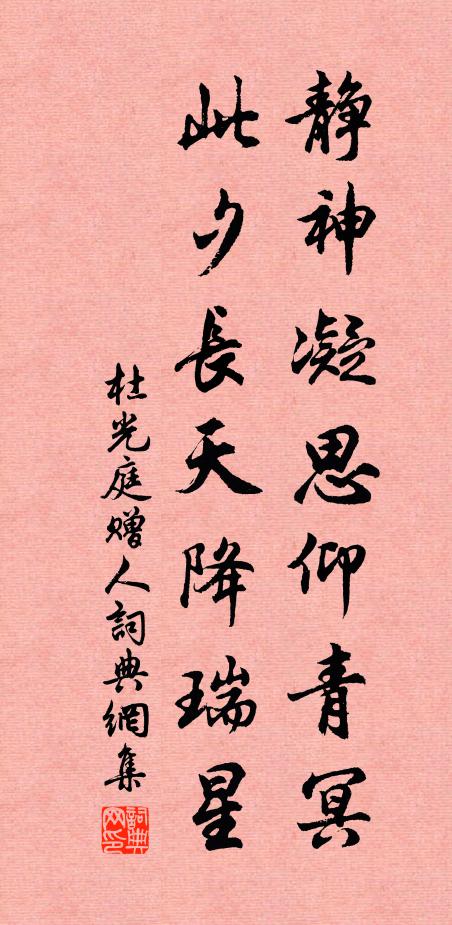 静神凝思仰青冥
此夕長天降瑞星
杜光庭贈人詞典網集
詞典網印